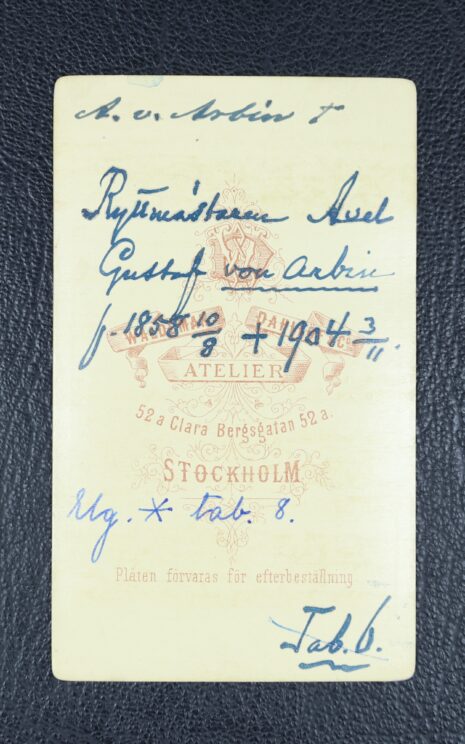 A. v. Arbin †
Ryttmästaren Axel
Gustaf von Arbin
f. 1858 10/8 + 1904 3/11.
WALDEMAR DAHL & Co
ATELIER
52 a Clara Bergsgatan 52 a.
STOCKHOLM
Elg. * tab. 8.
Plåten förvaras för efterbeställning
Tab. 6.